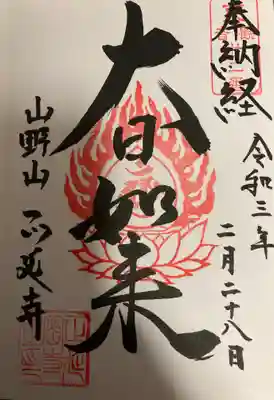 奉納経
令和三年
二月二十八日
大日如来
山野山
正延寺